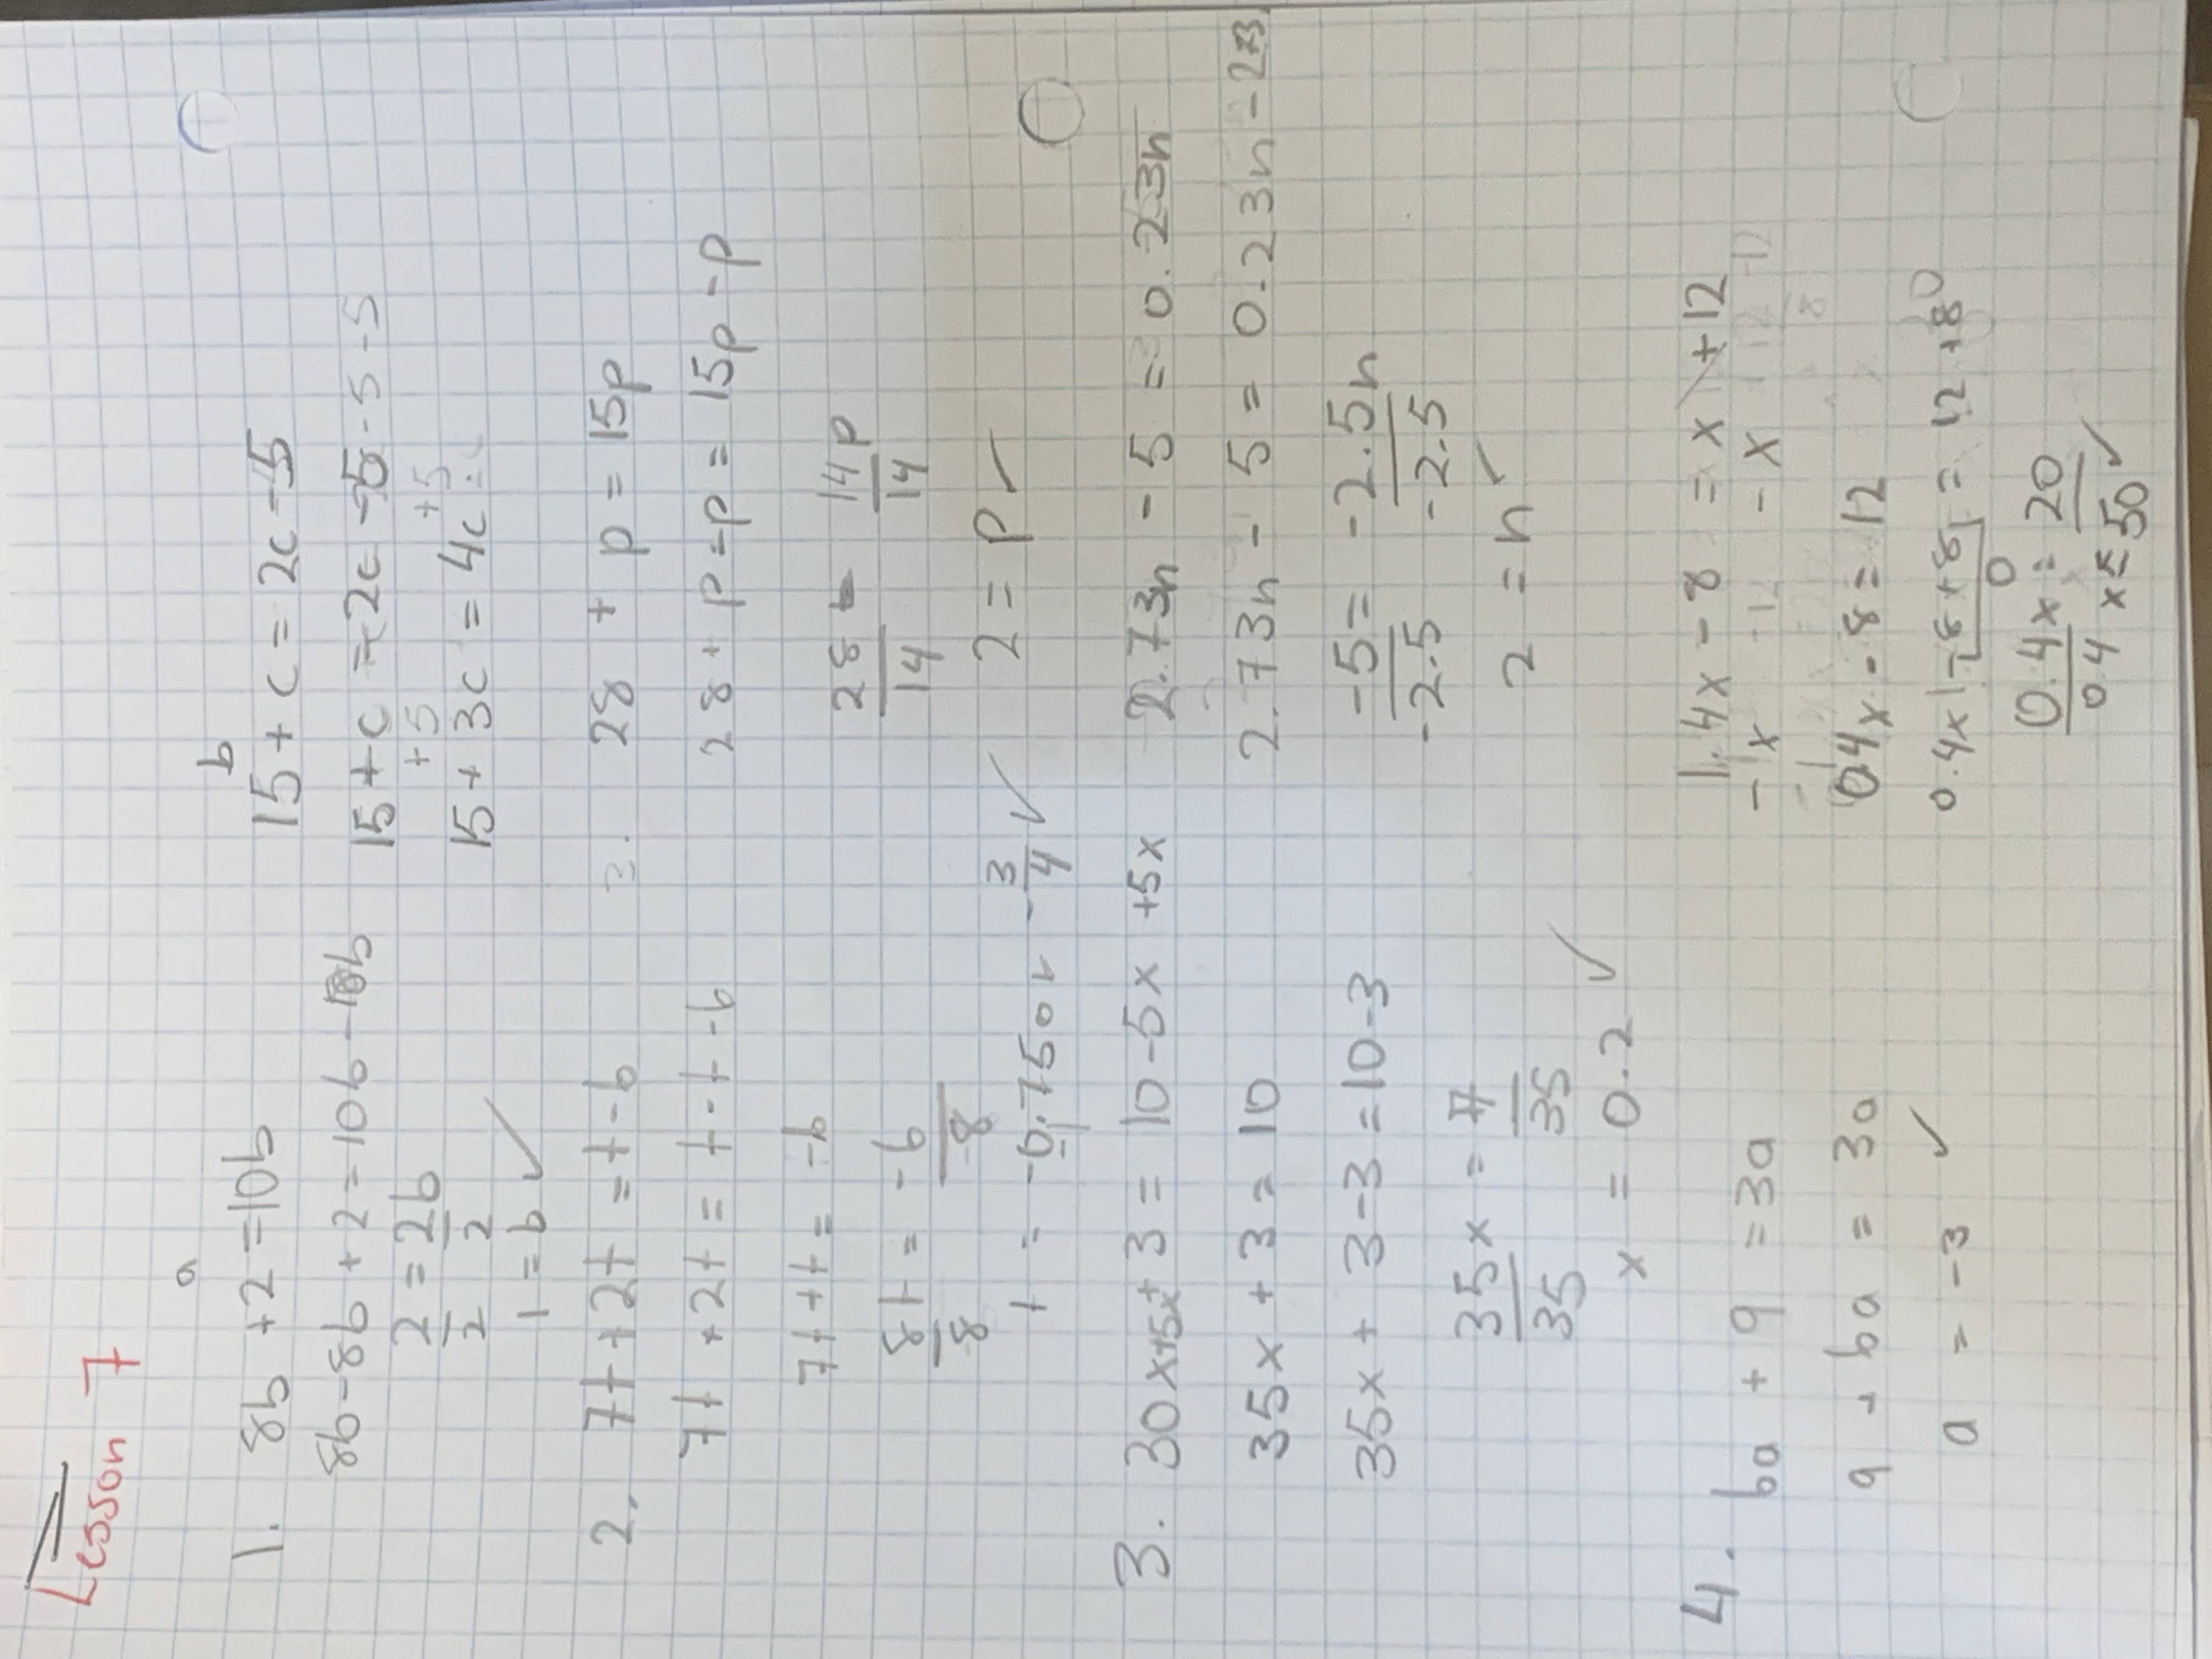 Lesson 7
a
1. 8b + 2 = 10b
8b - 8b + 2 = 10b - 8b
2/2 = 2b/2
1 = b ✓
b
15 + c = 2c - 5
15 + c = 2c - 5 - 5 - 5
+5 +5
15 + 3c = 4c
2. 7t + 2t = t - 6
7t + 2t = t - t - 6
7t + t = -6
8t/8 = -6/8
t = -0.75 or -3/4 ✓
3. 28 + p = 15p
28 + p - p = 15p - p
28/14 = 14p/14
2 = p ✓
3. 30x + 5x + 3 = 10 - 5x + 5x
35x + 3 = 10
35x + 3 - 3 = 10 - 3
35x/35 = 7/35
x = 0.2 ✓
2.73n - 5 = 0.23n
2.73n - 5 = 0.23n - 2.73
-5/-2.5 = -2.5n/-2.5
2 = n ✓
4. 6a + 9 = 3a
9 + 6a = 3a
a = -3 ✓
1.4x - 8 = x + 12
- x - 12 - x
0.4x - 8 = 12
0.4x - 8 + 8 = 12 + 8
0
0.4x/0.4 = 20
x = 50 ✓